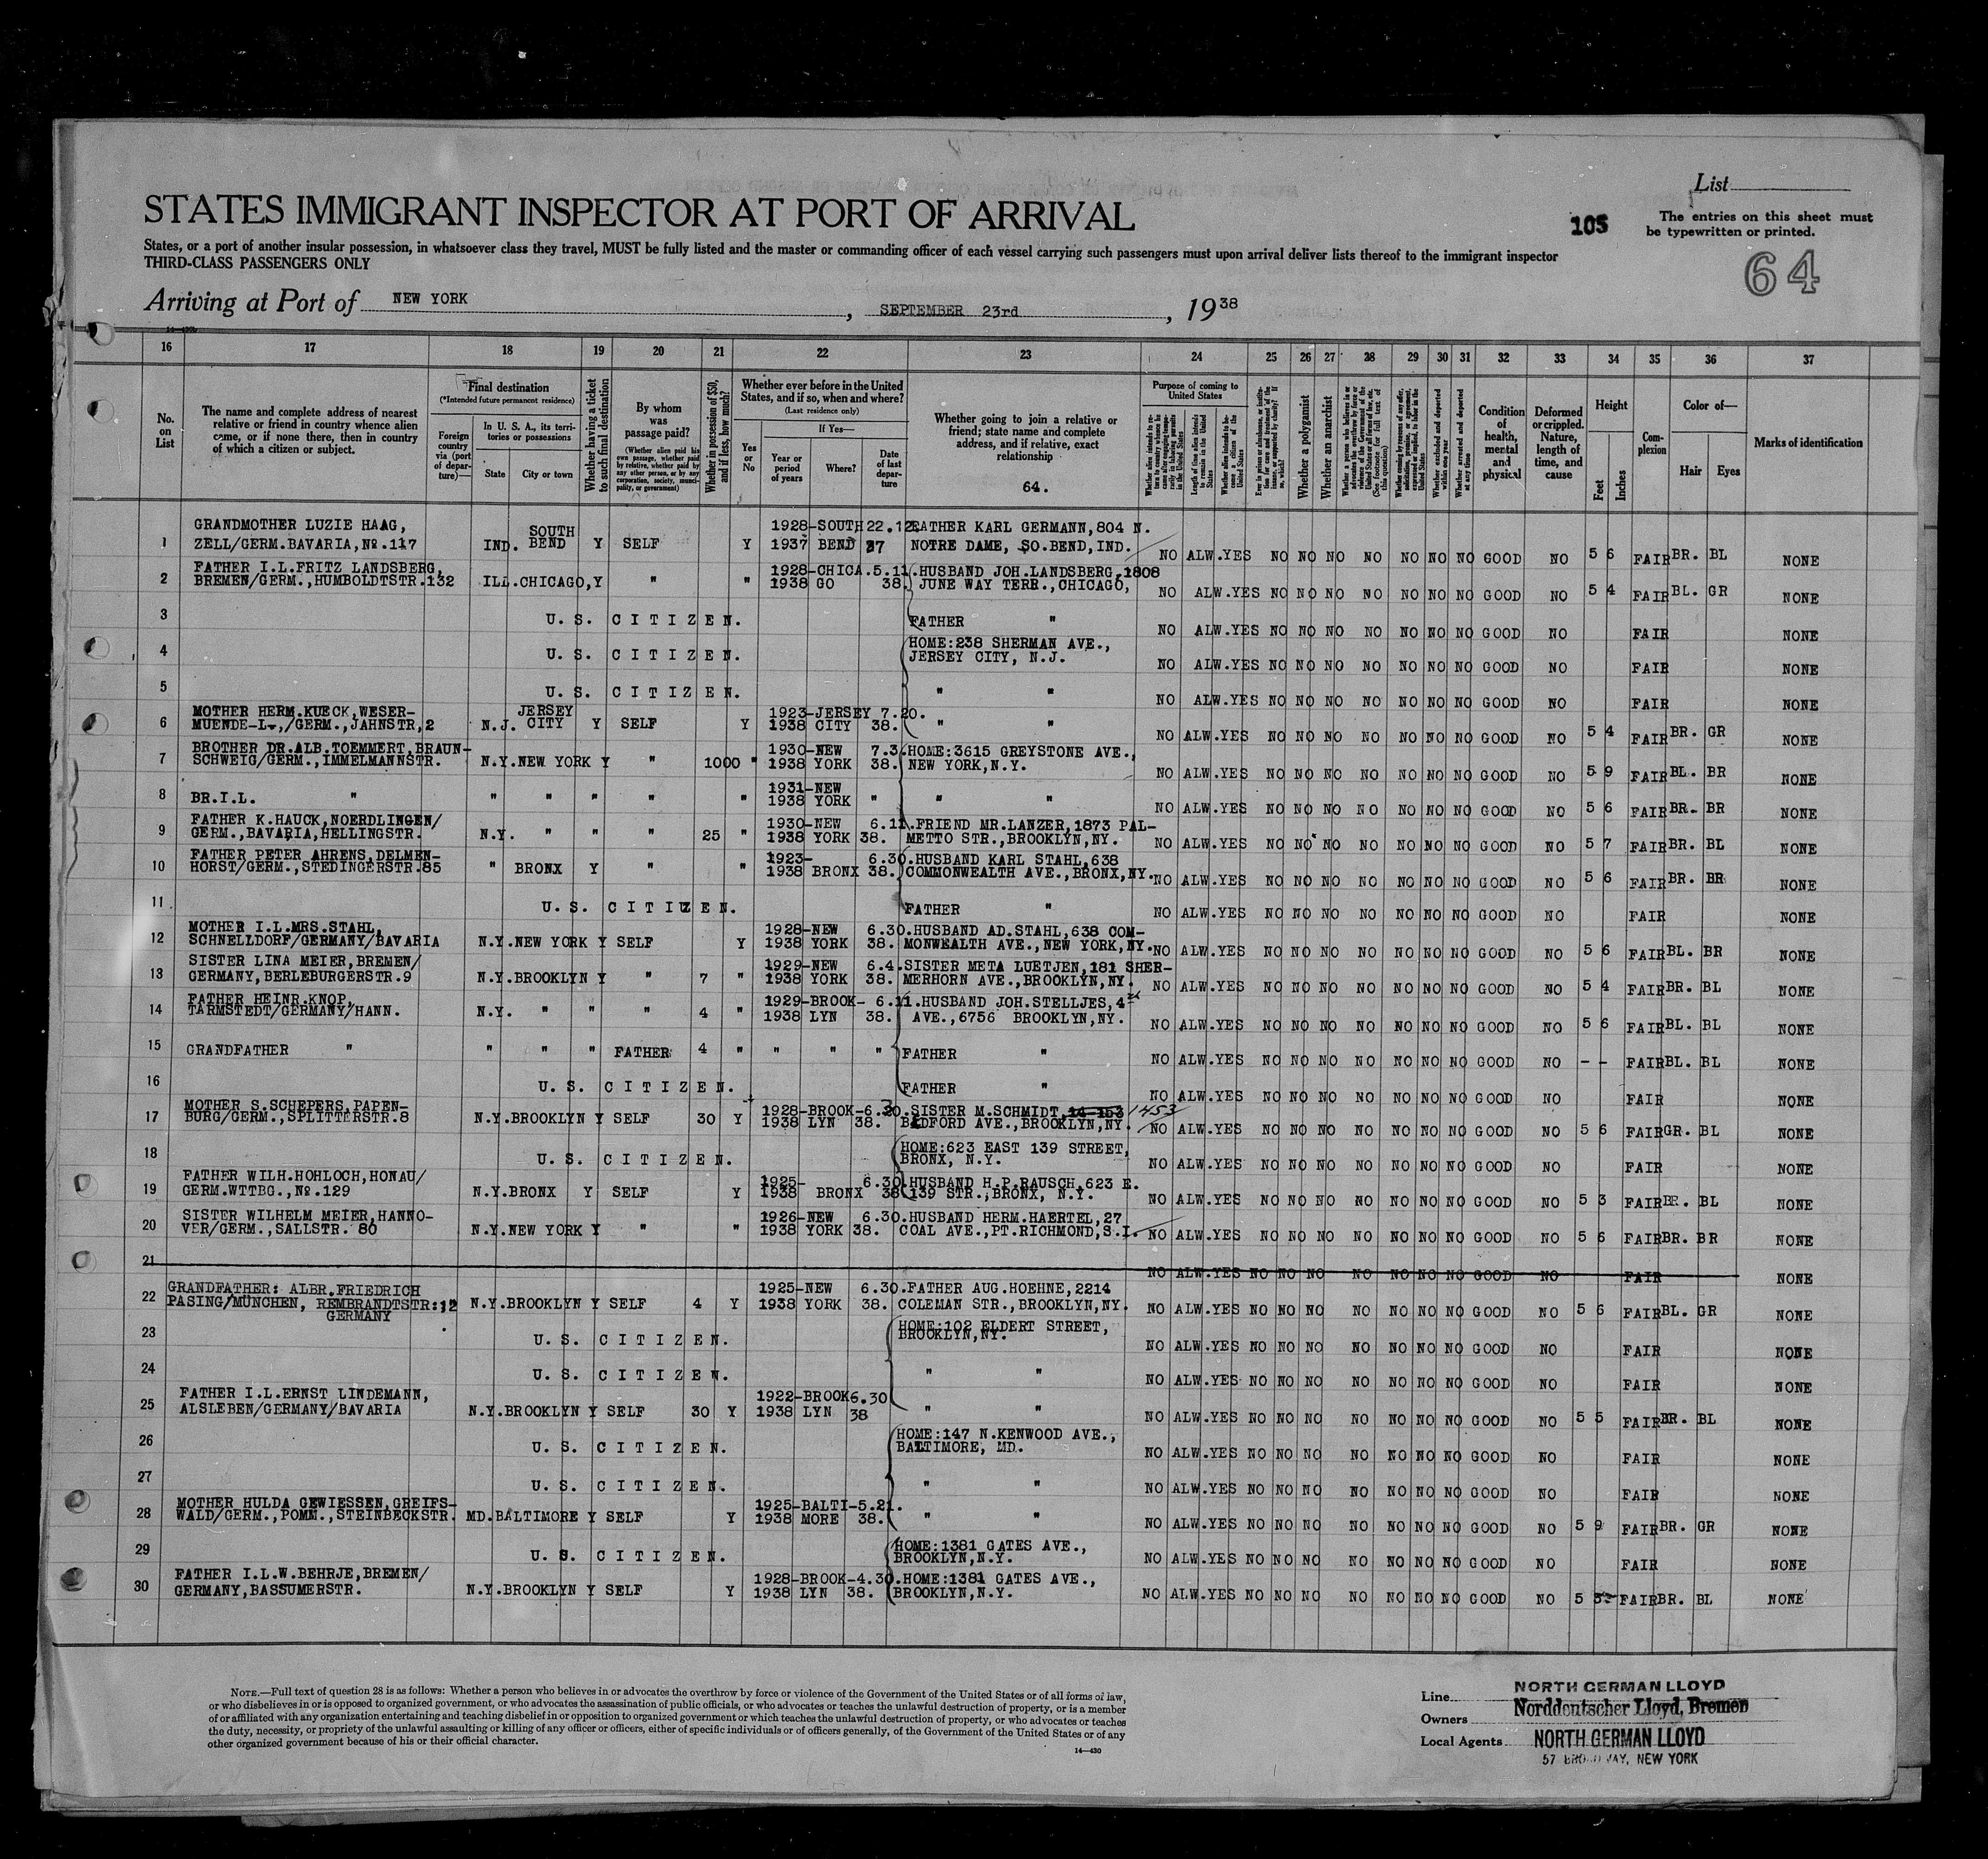 List
STATES IMMIGRANT INSPECTOR AT PORT OF ARRIVAL
105
The entries on this sheet must
be typewritten or printed.
64
States, or a port of another insular possession, in whatsoever class they travel, MUST be fully listed and the master or commanding officer of each vessel carrying such passengers must upon arrival deliver lists thereof to the immigrant inspector
THIRD-CLASS PASSENGERS ONLY
Arriving at Port of NEW YORK, SEPTEMBER 23rd, 1938
16 17 18 19 20 21 22 23 24 25 26 27 28 29 30 31 32 33 34 35 36 37
No. on List
The name and complete address of nearest relative or friend in country whence alien came, or if none there, then in country of which a citizen or subject.
Final destination
(*Intended future permanent residence)
Foreign country via (port of departure)—
In U. S. A., its territories or possessions
State
City or town
Whether having a ticket to such final destination
By whom was passage paid?
(Whether alien paid his own passage, whether paid by relative, whether paid by any other person, or by any corporation, society, municipality, or government)
Whether in possession of $50, and if less, how much?
Whether ever before in the United States, and if so, when and where?
(Last residence only)
Yes or No
If Yes—
Year or period of years
Where?
Date of last departure
Whether going to join a relative or friend; state name and complete address, and if relative, exact relationship
64.
Purpose of coming to United States
Whether a polygamist
Whether an anarchist
Condition of health, mental and physical
Deformed or crippled. Nature, length of time, and cause
Height
Feet
Inches
Complexion
Color of—
Hair
Eyes
Marks of identification
1 GRANDMOTHER LUZIE HAAG, ZELL/GERM.BAVARIA,No.117 IND. SOUTH BEND Y SELF Y 1928-1937 SOUTH BEND 22.12. 37 FATHER KARL GERMANN,804 N. NOTRE DAME, SO.BEND,IND. NO ALW.YES NO NO NO NO NO NO NO GOOD NO 5 6 FAIR BR. BL NONE
2 FATHER I.L.FRITZ LANDSBERG, BREMEN/GERM.,HUMBOLDTSTR.132 ILL.CHICAGO,Y " " 1928-1938 CHICAGO 5.11. 38. HUSBAND JOH.LANDSBERG,1808 JUNE WAY TERR.,CHICAGO, NO ALW.YES NO NO NO NO NO NO NO GOOD NO 5 4 FAIR BL. GR NONE
3 U. S. CITIZEN. FATHER " NO ALW.YES NO NO NO NO NO NO NO GOOD NO FAIR NONE
4 U. S. CITIZEN. HOME:238 SHERMAN AVE., JERSEY CITY, N.J. NO ALW.YES NO NO NO NO NO NO NO GOOD NO FAIR NONE
5 U. S. CITIZEN. " " NO ALW.YES NO NO NO NO NO NO NO GOOD NO FAIR NONE
6 MOTHER HERM.KUECK,WESER-MUENDE-L-,/GERM.,JAHNSTR,2 N.J. JERSEY CITY Y SELF Y 1923-1938 JERSEY CITY 7.20. 38. " " NO ALW.YES NO NO NO NO NO NO NO GOOD NO 5 4 FAIR BR. GR NONE
7 BROTHER DR.ALB.TOEMMERT,BRAUN-SCHWEIG/GERM.,IMMELMANNSTR. N.Y.NEW YORK Y " 1000 " 1930-1938 NEW YORK 7.3. 38. HOME:3615 GREYSTONE AVE., NEW YORK,N.Y. NO ALW.YES NO NO NO NO NO NO NO GOOD NO 5 9 FAIR BL. BR NONE
8 BR.I.L. " " " " " " 1931-1938 NEW YORK " " " NO ALW.YES NO NO NO NO NO NO NO GOOD NO 5 6 FAIR BR. BR NONE
9 FATHER K.HAUCK,NOERDLINGEN/GERM.,BAVARIA,HELLINGSTR. N.Y. " " " 25 " 1930-1938 NEW YORK 6.11. 38. FRIEND MR.LANZER,1873 PAL-METTO STR.,BROOKLYN,NY. NO ALW.YES NO NO NO NO NO NO NO GOOD NO 5 7 FAIR BR. BL NONE
10 FATHER PETER AHRENS,DELMEN-HORST/GERM.,STEDINGERSTR.85 " BRONX Y " " 1923-1938 BRONX 6.30. 38. HUSBAND KARL STAHL,638 COMMONWEALTH AVE.,BRONX,NY. NO ALW.YES NO NO NO NO NO NO NO GOOD NO 5 6 FAIR BR. BR NONE
11 U. S. CITIZEN. FATHER " NO ALW.YES NO NO NO NO NO NO NO GOOD NO FAIR NONE
12 MOTHER I.L.MRS.STAHL, SCHNELLDORF/GERMANY/BAVARIA N.Y.NEW YORK Y SELF Y 1928-1938 NEW YORK 6.30. 38. HUSBAND AD.STAHL,638 COM-MONWEALTH AVE.,NEW YORK,NY. NO ALW.YES NO NO NO NO NO NO NO GOOD NO 5 6 FAIR BL. BR NONE
13 SISTER LINA MEIER,BREMEN/GERMANY,BERLEBURGERSTR.9 N.Y.BROOKLYN Y " 7 " 1929-1938 NEW YORK 6.4. 38. SISTER META LUETJEN,181 SHER-MERHORN AVE.,BROOKLYN,NY. NO ALW.YES NO NO NO NO NO NO NO GOOD NO 5 4 FAIR BR. BL NONE
14 FATHER HEINR.KNOP, TARMSTEDT/GERMANY/HANN. N.Y. " " " 4 " 1929-1938 BROOKLYN 6.11. 38. HUSBAND JOH.STELLJES,4 AVE.,6756 BROOKLYN,NY. NO ALW.YES NO NO NO NO NO NO NO GOOD NO 5 6 FAIR BL. BL NONE
15 GRANDFATHER " " " " FATHER 4 " " " " FATHER " NO ALW.YES NO NO NO NO NO NO NO GOOD NO - - FAIR BL. BL NONE
16 U. S. CITIZEN. FATHER " NO ALW.YES NO NO NO NO NO NO NO GOOD NO FAIR NONE
17 MOTHER S.SCHEPERS,PAPEN-BURG/GERM.,SPLITTERSTR.8 N.Y.BROOKLYN Y SELF 30 Y 1928-1938 BROOKLYN 6.30. 38. SISTER M.SCHMIDT, 14-153 1453 BEDFORD AVE.,BROOKLYN,NY. NO ALW.YES NO NO NO NO NO NO NO GOOD NO 5 6 FAIR GR. BL NONE
18 U. S. CITIZEN. HOME:623 EAST 139 STREET, BRONX, N.Y. NO ALW.YES NO NO NO NO NO NO NO GOOD NO FAIR NONE
19 FATHER WILH.HOHLOCH,HONAU/GERM.WTTBG.,No.129 N.Y.BRONX Y SELF Y 1925-1938 BRONX 6.30. 38 HUSBAND H.P.RAUSCH,623 E. 139 STR.,BRONX, N.Y. NO ALW.YES NO NO NO NO NO NO NO GOOD NO 5 3 FAIR BR. BL NONE
20 SISTER WILHELM MEIER,HANNO-VER/GERM.,SALLSTR. 86 N.Y.NEW YORK Y " " 1926-1938 NEW YORK 6.30. 38. HUSBAND HERM.HAERTEL,27 COAL AVE.,PT.RICHMOND,S.I. NO ALW.YES NO NO NO NO NO NO NO GOOD NO 5 6 FAIR BR. BR NONE
21 NO ALW.YES NO NO NO NO NO NO NO GOOD NO FAIR NONE
22 GRANDFATHER: ALBR.FRIEDRICH PASING/MÜNCHEN, REMBRANDTSTR:12 GERMANY N.Y.BROOKLYN Y SELF 4 Y 1925-1938 NEW YORK 6.30. 38. FATHER AUG.HOEHNE,2214 COLEMAN STR.,BROOKLYN,NY. NO ALW.YES NO NO NO NO NO NO NO GOOD NO 5 6 FAIR BL. GR NONE
23 U. S. CITIZEN. HOME:102 ELDERT STREET, BROOKLYN,NY. NO ALW.YES NO NO NO NO NO NO NO GOOD NO FAIR NONE
24 U. S. CITIZEN. " " NO ALW.YES NO NO NO NO NO NO NO GOOD NO FAIR NONE
25 FATHER I.L.ERNST LINDEMANN, ALSLEBEN/GERMANY/BAVARIA N.Y.BROOKLYN Y SELF 30 Y 1922-1938 BROOKLYN 6.30 38 " " NO ALW.YES NO NO NO NO NO NO NO GOOD NO 5 5 FAIR BR. BL NONE
26 U. S. CITIZEN. HOME:147 N.KENWOOD AVE., BALTIMORE, MD. NO ALW.YES NO NO NO NO NO NO NO GOOD NO FAIR NONE
27 U. S. CITIZEN. " " NO ALW.YES NO NO NO NO NO NO NO GOOD NO FAIR NONE
28 MOTHER HULDA GEWIESSEN,GREIFS-WALD/GERM.,POMM.,STEINBECKSTR. MD.BALTIMORE Y SELF Y 1925-1938 BALTIMORE 5.21. 38. " " NO ALW.YES NO NO NO NO NO NO NO GOOD NO 5 9 FAIR BR. GR NONE
29 U. S. CITIZEN. HOME:1381 GATES AVE., BROOKLYN,N.Y. NO ALW.YES NO NO NO NO NO NO NO GOOD NO FAIR NONE
30 FATHER I.L.W.BEHRJE,BREMEN/GERMANY,BASSUMERSTR. N.Y.BROOKLYN Y SELF Y 1928-1938 BROOKLYN 4.30. 38. HOME:1381 GATES AVE., BROOKLYN,N.Y. NO ALW.YES NO NO NO NO NO NO NO GOOD NO 5 FAIR BR. BL NONE
NOTE.—Full text of question 28 is as follows: Whether a person who believes in or advocates the overthrow by force or violence of the Government of the United States or of all forms of law,
or who disbelieves in or is opposed to organized government, or who advocates the assassination of public officials, or who advocates or teaches the unlawful destruction of property, or is a member
of or affiliated with any organization entertaining and teaching disbelief in or opposition to organized government or which teaches the unlawful destruction of property, or who advocates or teaches
the duty, necessity, or propriety of the unlawful assaulting or killing of any officer or officers, either of specific individuals or of officers generally, of the Government of the United States or of any
other organized government because of his or their official character.
14—430
Line NORTH GERMAN LLOYD
Owners Norddeutscher Lloyd, Bremen
Local Agents NORTH GERMAN LLOYD
57 BROADWAY, NEW YORK